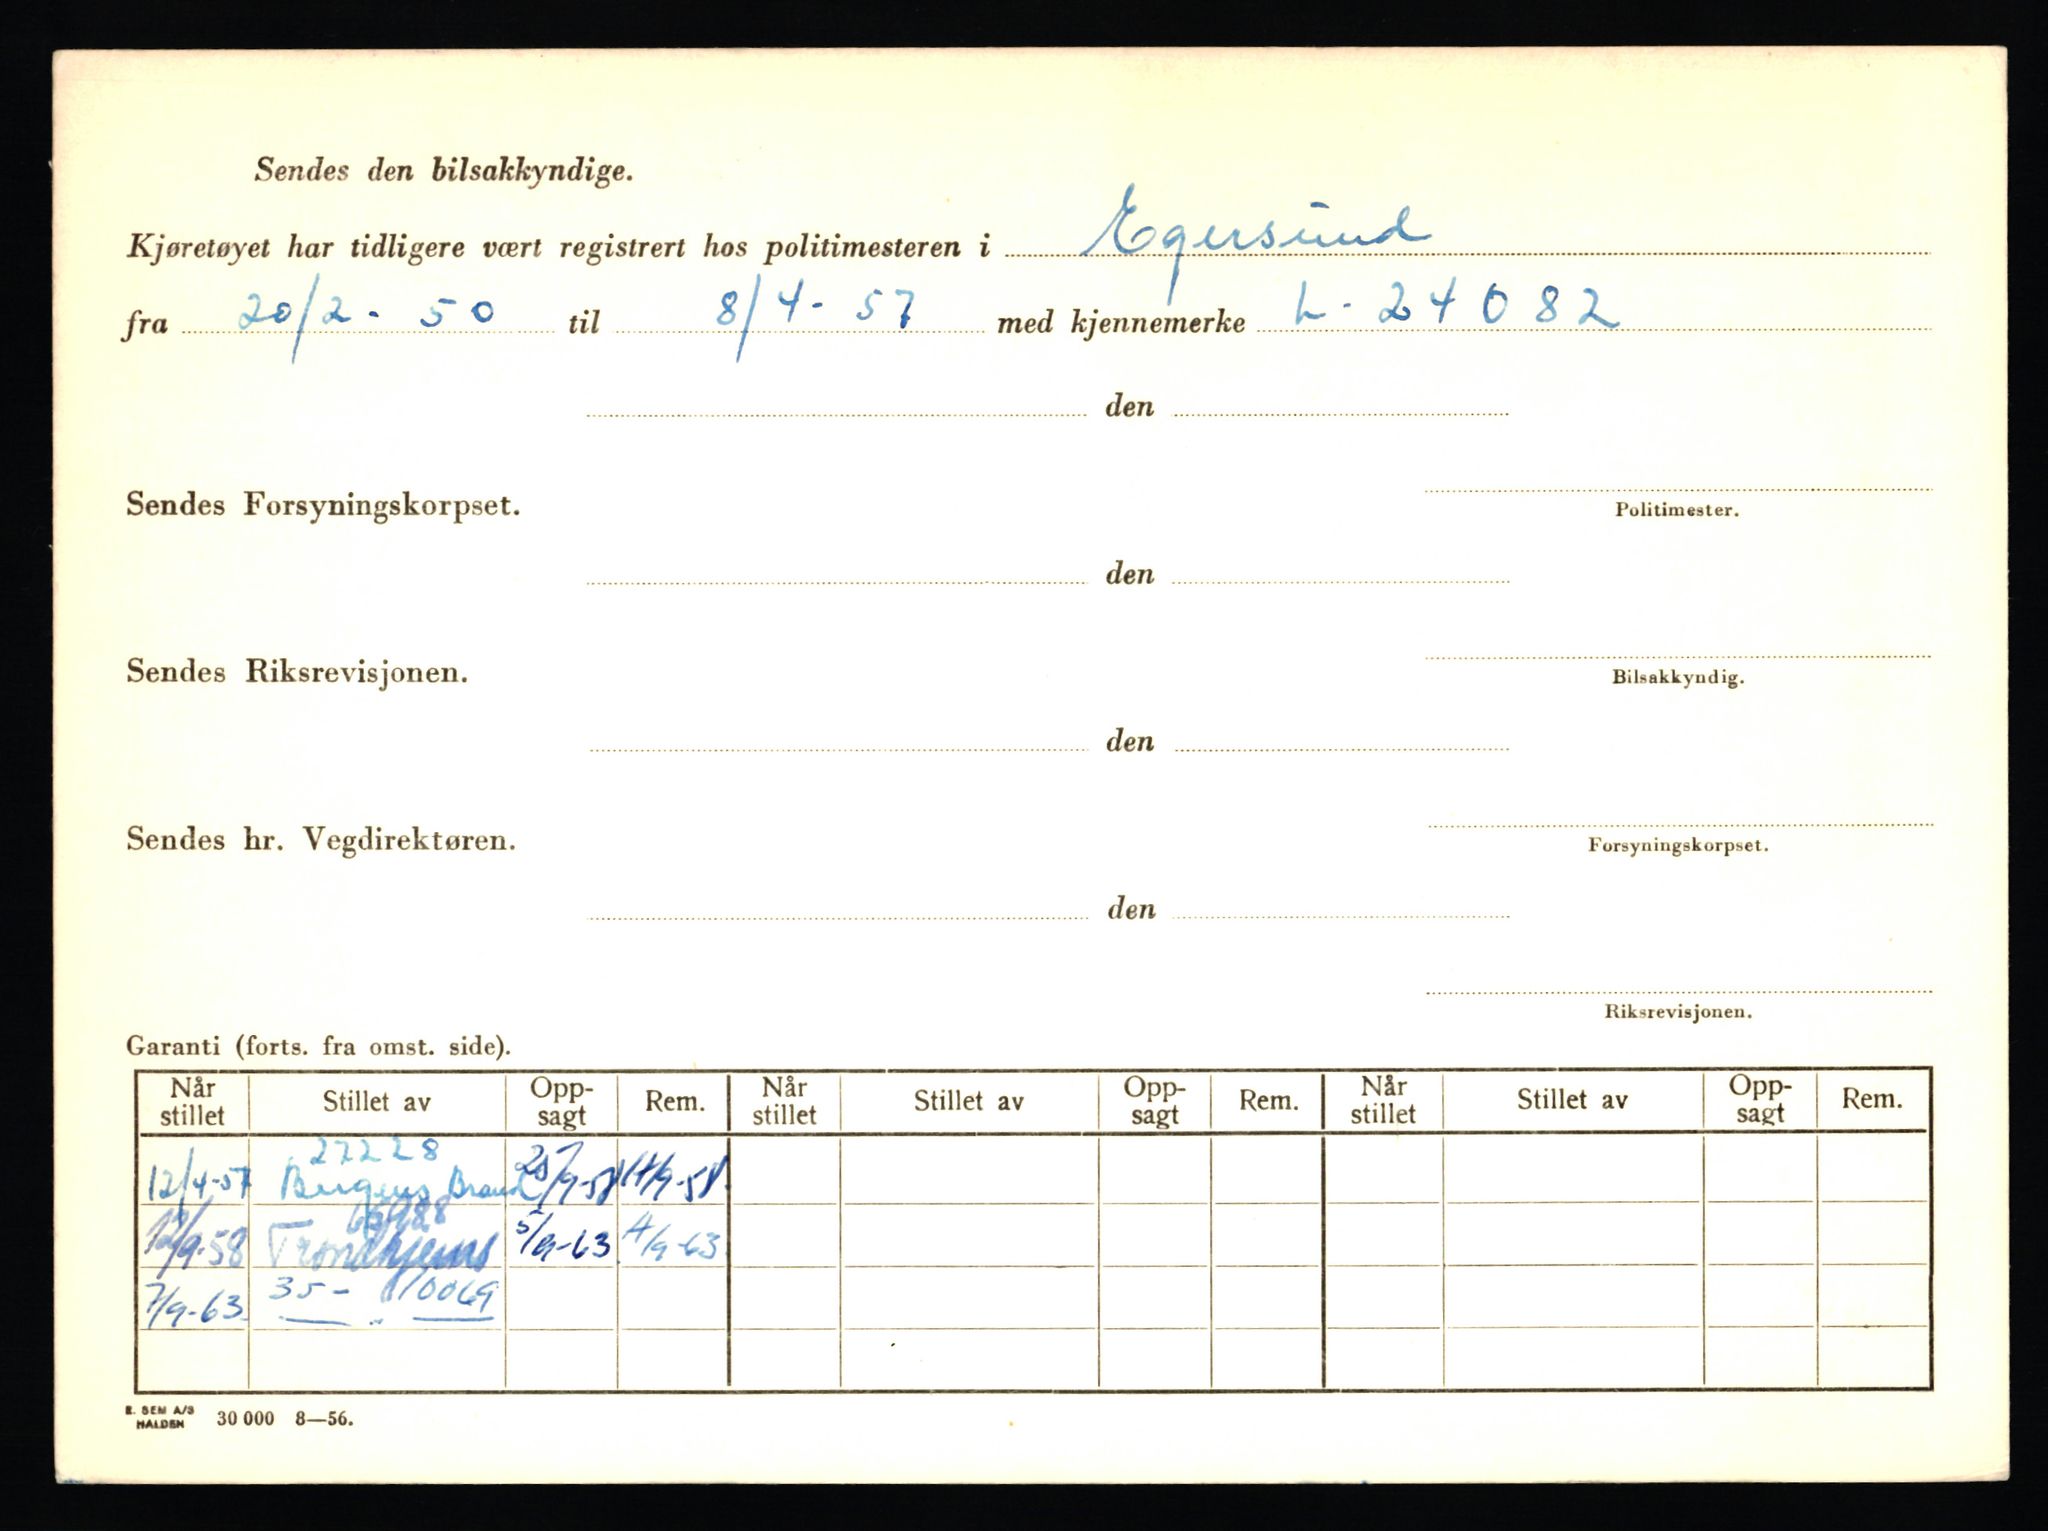 Sendes den bilsakkyndige.
Kjøretøyet har tidligere vært registrert hos politimesteren i Egersund
fra 20/2 - 50 til 8/4 - 57 med kjennemerke L - 24082
den
Sendes Forsyningskorpset.
Politimester.
den
Sendes Riksrevisjonen.
Bilsakkyndig.
den
Sendes hr. Vegdirektøren.
Forsyningskorpset.
den
Riksrevisjonen.
Garanti (forts. fra omst. side).
Når stillet Stillet av Opp-sagt Rem. Når stillet Stillet av Opp-sagt Rem. Når stillet Stillet av Opp-sagt Rem.
27228
12/4-57 Bergens Brand 25/9-58 14/9-58
/9-58 Trondhjems 5/9-63 4/9-63
7/9-63 35- 10069
E. SEM A/S
HALDEN 30 000 8—56.